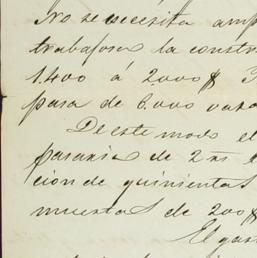 No se necesita amp
trabajosa la constr
1.400 á 2000$
pasa de 6.000 vara
De este modo el
pasaria de 2 rs
cion de quinientas
muertas de 200$
El gas